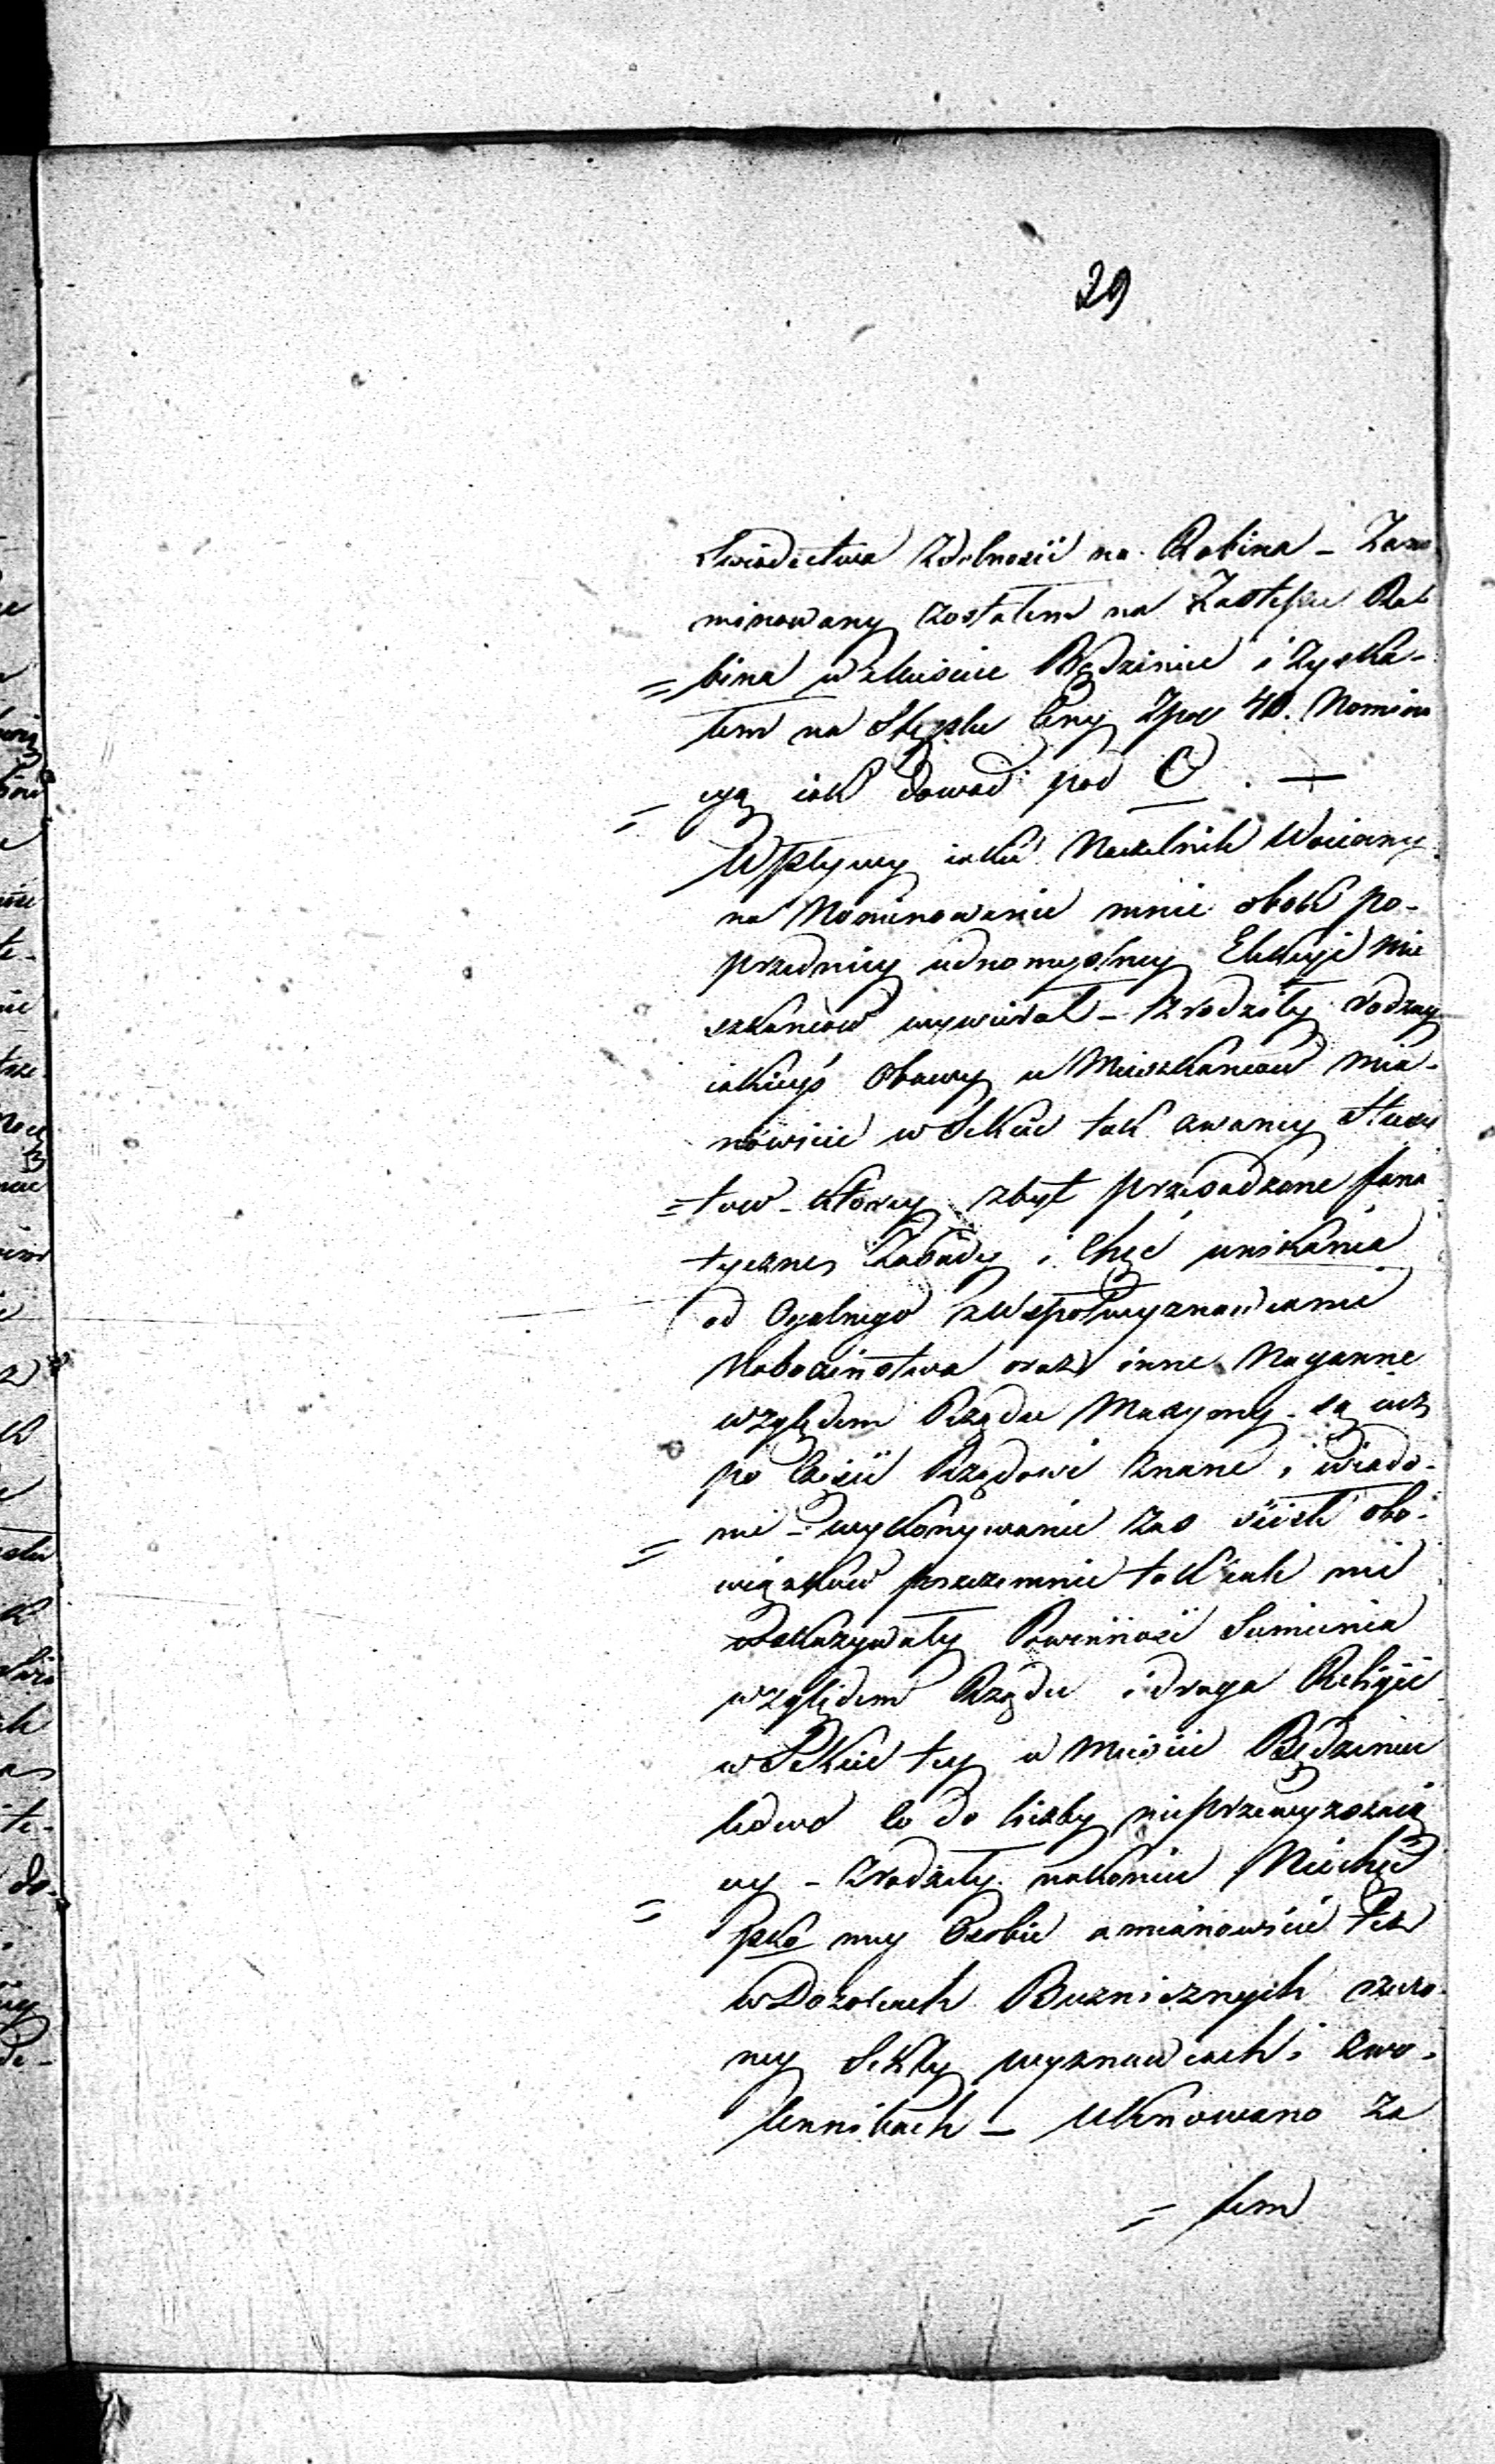 29
Swiadectwa Zdolności na Rabina – Zano
minowany zostałem na Zastępce Rab
= bina w Mieście Będzinie i zyska-
łem na Stęplu Ceny Zpol 40. Nomina
= cyą iak dowod pod C . —
Wpływy iakie Naczelnik
na Nominowanie mnie obok po-
przedniey iednomyslney Elekcyi Mie
szkancow wywierał – Zrodziły rodzay
iakieyś Obawy w Mieszkancach mia-
nowicie w Sekcie tak zwaney Husy
= tow – ktorzy zbyt przesadzone fana
tyczne Zasady i Chęć unikania
od Ogolnego z Wspołwyznawcami
Nabożeństwa oraz inne Naganne
względem Rządu Maxymy – są iuż
po Części Rządowi znane i wiado-
= me – wykonywanie zas ścisłe obo-
wiązkow przezemnie tak iak mi
wskazywały Powinność Sumienia
względem Rządu i droga Religii
w Sekcie tey w Mieście Będzinie
ledwo co do liczby nieprzewyższaią
= cy – Zrodziły nakoniec Niechęć
pko mey Osobie a mianowicie też
w Dozorcach Bużnicznych rzeczo-
ney Sekty wyznawcach i zwo-
lennikach – Uknowano za
= tem